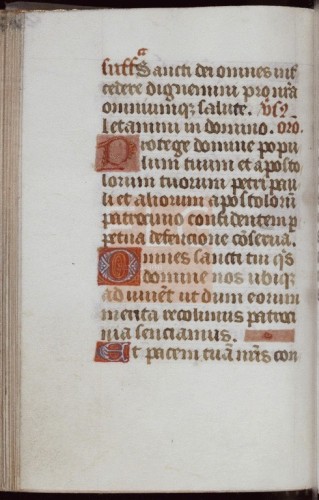 suff̃ Sancti dei omnes int̃
cedere dignemini pro nr̃a
omniumqꝫ salute. v̓sꝯ
Letamini in domino. oro̅.
Protege domine popu
lum tuum et aposto
lorum tuorum petri pau
li et aliorum apostolorũ
patrocinio confidentem ꝑ
petua defencione cõserua.
Omnes sancti tui qs̃
domine nos ubiqꝫ
adiuuẽt ut dum eorum
merita recolimus patroci
nia senciamus.
Et pacem tuã nr̃is con